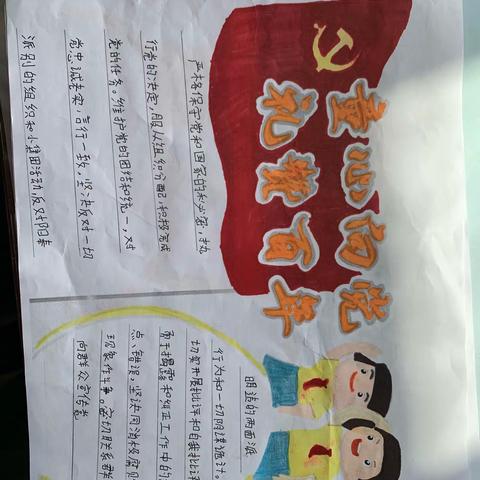 童心向党
礼赞百年
严格保守党和国家的秘密,执
行党的决定,服从组织分配,积极完成
党的任务。维护党的团结和统一,对
党忠诚老实,言行一致,坚决反对一切
派别的组织和小集团活动,反对阳奉
明违的两面派
行为和一切阴谋诡计。
切实开展批评和自我批评
勇于揭露和纠正工作中的
点、错误,坚决同消极腐
现象作斗争。密切联系群
向群众宣传党